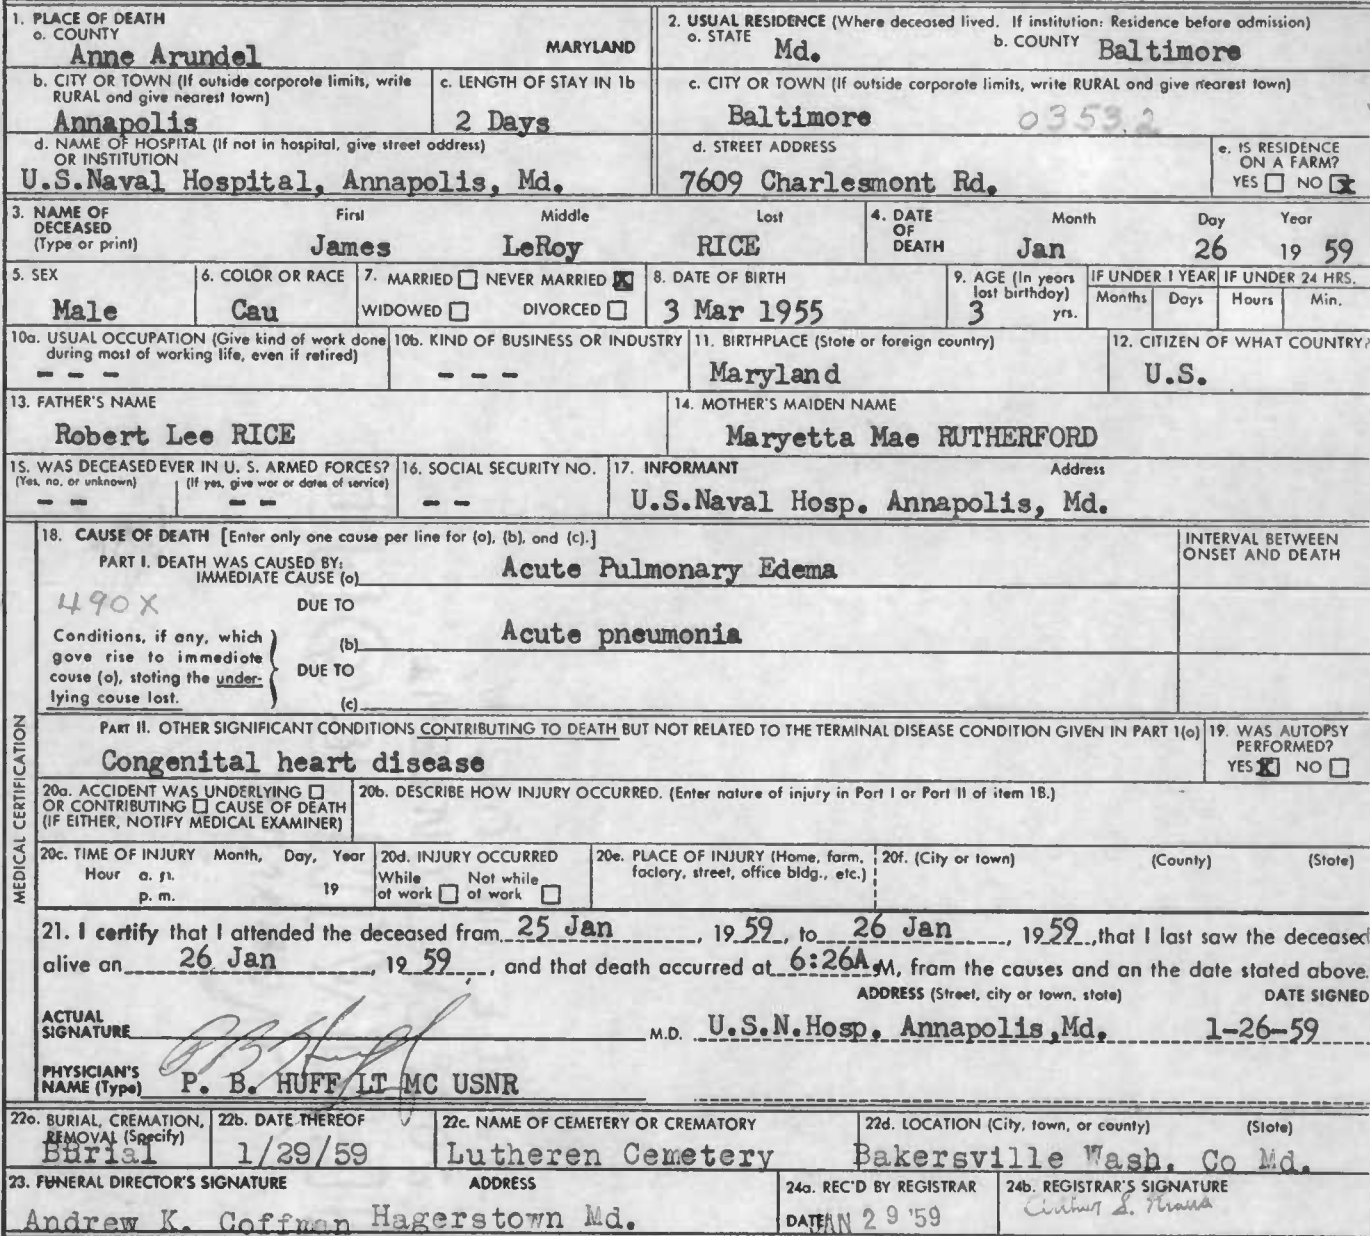 1. PLACE OF DEATH
a. COUNTY
Anne Arundel MARYLAND
2. USUAL RESIDENCE (Where deceased lived. If institution: Residence before admission)
a. STATE Md. b. COUNTY Baltimore
b. CITY OR TOWN (If outside corporate limits, write RURAL and give nearest town)
Annapolis
c. LENGTH OF STAY IN 1b
2 Days
c. CITY OR TOWN (If outside corporate limits, write RURAL and give nearest town)
Baltimore 0353.2
d. NAME OF HOSPITAL (If not in hospital, give street address)
OR INSTITUTION
U.S.Naval Hospital, Annapolis, Md.
d. STREET ADDRESS
7609 Charlesmont Rd.
e. IS RESIDENCE
ON A FARM?
YES NO X
3. NAME OF
DECEASED
(Type or print)
First Middle Last
James LeRoy RICE
4. DATE
OF
DEATH
Month Day Year
Jan 26 19 59
5. SEX
Male
6. COLOR OR RACE
Cau
7. MARRIED NEVER MARRIED X
WIDOWED DIVORCED
8. DATE OF BIRTH
3 Mar 1955
9. AGE (In years
last birthday)
3 yrs.
IF UNDER 1 YEAR IF UNDER 24 HRS.
Months Days Hours Min.
10a. USUAL OCCUPATION (Give kind of work done
during most of working life, even if retired)
- - -
10b. KIND OF BUSINESS OR INDUSTRY
- - -
11. BIRTHPLACE (State or foreign country)
Maryland
12. CITIZEN OF WHAT COUNTRY?
U.S.
13. FATHER'S NAME
Robert Lee RICE
14. MOTHER'S MAIDEN NAME
Maryetta Mae RUTHERFORD
15. WAS DECEASED EVER IN U. S. ARMED FORCES?
(Yes, no, or unknown) (If yes, give war or dates of service)
- - - -
16. SOCIAL SECURITY NO.
- -
17. INFORMANT Address
U.S.Naval Hosp. Annapolis, Md.
MEDICAL CERTIFICATION
18. CAUSE OF DEATH [Enter only one cause per line for (a), (b), and (c).]
INTERVAL BETWEEN
ONSET AND DEATH
PART I. DEATH WAS CAUSED BY:
IMMEDIATE CAUSE (a) Acute Pulmonary Edema
490X DUE TO
Conditions, if any, which
gave rise to immediate
cause (a), stating the under-
lying cause last.
(b) Acute pneumonia
DUE TO
(c)
PART II. OTHER SIGNIFICANT CONDITIONS CONTRIBUTING TO DEATH BUT NOT RELATED TO THE TERMINAL DISEASE CONDITION GIVEN IN PART 1(a)
Congenital heart disease
19. WAS AUTOPSY
PERFORMED?
YES X NO
20a. ACCIDENT WAS UNDERLYING
OR CONTRIBUTING CAUSE OF DEATH
(IF EITHER, NOTIFY MEDICAL EXAMINER)
20b. DESCRIBE HOW INJURY OCCURRED. (Enter nature of injury in Part I or Part II of item 18.)
20c. TIME OF INJURY Month, Day, Year
Hour a. m.
p. m. 19
20d. INJURY OCCURRED
While Not while
at work at work
20e. PLACE OF INJURY (Home, farm,
factory, street, office bldg., etc.)
20f. (City or town) (County) (State)
21. I certify that I attended the deceased from 25 Jan, 19 59, to 26 Jan, 19 59, that I last saw the deceased
alive on 26 Jan, 19 59, and that death occurred at 6:26A.M, from the causes and on the date stated above.
ADDRESS (Street, city or town, state) DATE SIGNED
ACTUAL
SIGNATURE P B Huff M.D. U.S.N.Hosp. Annapolis,Md. 1-26-59
PHYSICIAN'S
NAME (Type) P. B. HUFF LT MC USNR
22a. BURIAL, CREMATION,
REMOVAL (Specify)
Burial
22b. DATE THEREOF
1/29/59
22c. NAME OF CEMETERY OR CREMATORY
Lutheren Cemetery
22d. LOCATION (City, town, or county) (State)
Bakersville Wash. Co Md.
23. FUNERAL DIRECTOR'S SIGNATURE ADDRESS
Andrew K. Coffman Hagerstown Md.
24a. REC'D BY REGISTRAR
DATE JAN 29 '59
24b. REGISTRAR'S SIGNATURE
Arthur S. Kraus